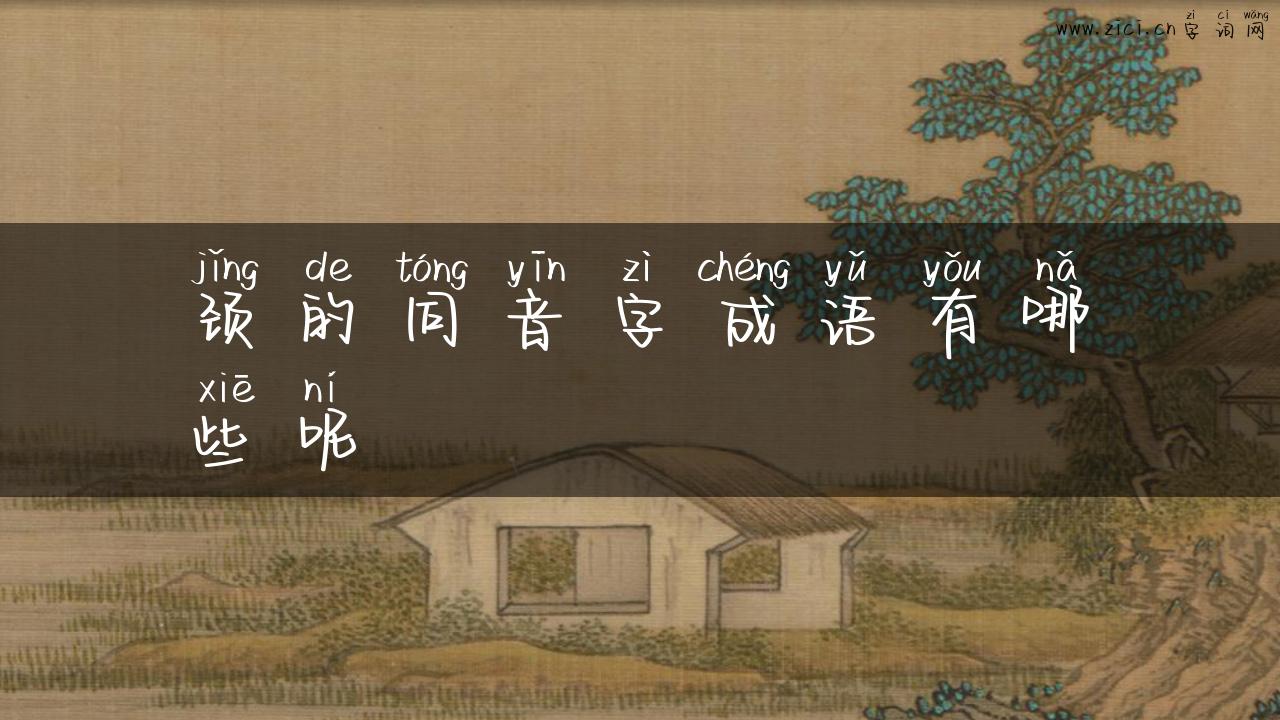 zì cí wǎng
www.zici.cn 字词网
jǐng de tóng yīn zì chéng yǔ yǒu nǎ
颈的同音字成语有哪
xiē ní
些呢